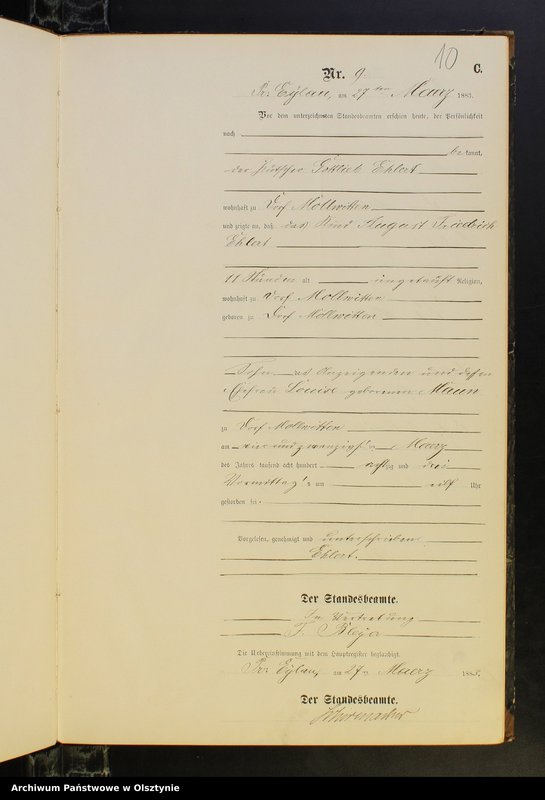 10
C.
Nr. 9.
Pr. Eylau, am 27ten Maerz 1883.
Vor dem unterzeichneten Standesbeamten erschien heute, der Persönlichkeit
nach
bekannt,
der Kutscher Gottlieb Ehlert
wohnhaft zu Dorf Mollwitten
und zeigte an, daß das Kind August Friedrich
Ehlert
11 Stunden alt ungetauft Religion,
wohnhaft zu Dorf Mollwitten
geboren zu Dorf Mollwitten
Sohn des Anzeigenden und dessen
Ehefrau Louise geborenen Maun
zu Dorf Mollwitten
am ein und zwanzigsten Maerz
des Jahres tausend acht hundert achtzig und drei
Vormittags um elf Uhr
gestorben sei.
Vorgelesen, genehmigt und unterschrieben
Ehlert.
Der Standesbeamte.
In Vertretung
Die Uebereinstimmung mit dem Hauptregister beglaubigt.
Pr. Eylau, am 27ten Maerz 1883.
Der Standesbeamte.
Archiwum Państwowe w Olsztynie